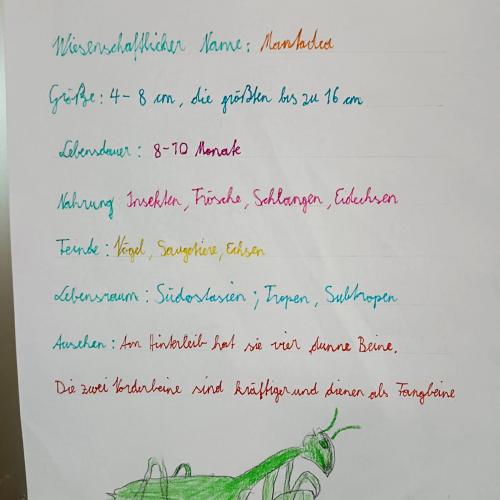 Wiesenschaftlicher Name: Mantodea
Größe: 4-8 cm, die größten bis zu 16 cm
Lebensdauer: 8-10 Monate
Nahrung Insekten, Frösche, Schlangen, Eidechsen
Feinde: Vögel, Saugetiere, Echsen
Lebensraum: Südostasien; Tropen, Subtropen
Aussehen: Am Hinterleib hat sie vier dünne Beine.
Die zwei Vorderbeine sind kräftiger und dienen als Fangbeine